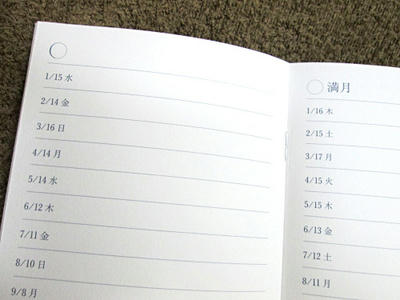 1/15 水
2/14 金
3/16 日
4/14 月
5/14 水
6/12 木
7/11 金
8/10 日
9/8 月
満月
1/16 木
2/15 土
3/17 月
4/15 火
5/15 木
6/13 金
7/12 土
8/11 月